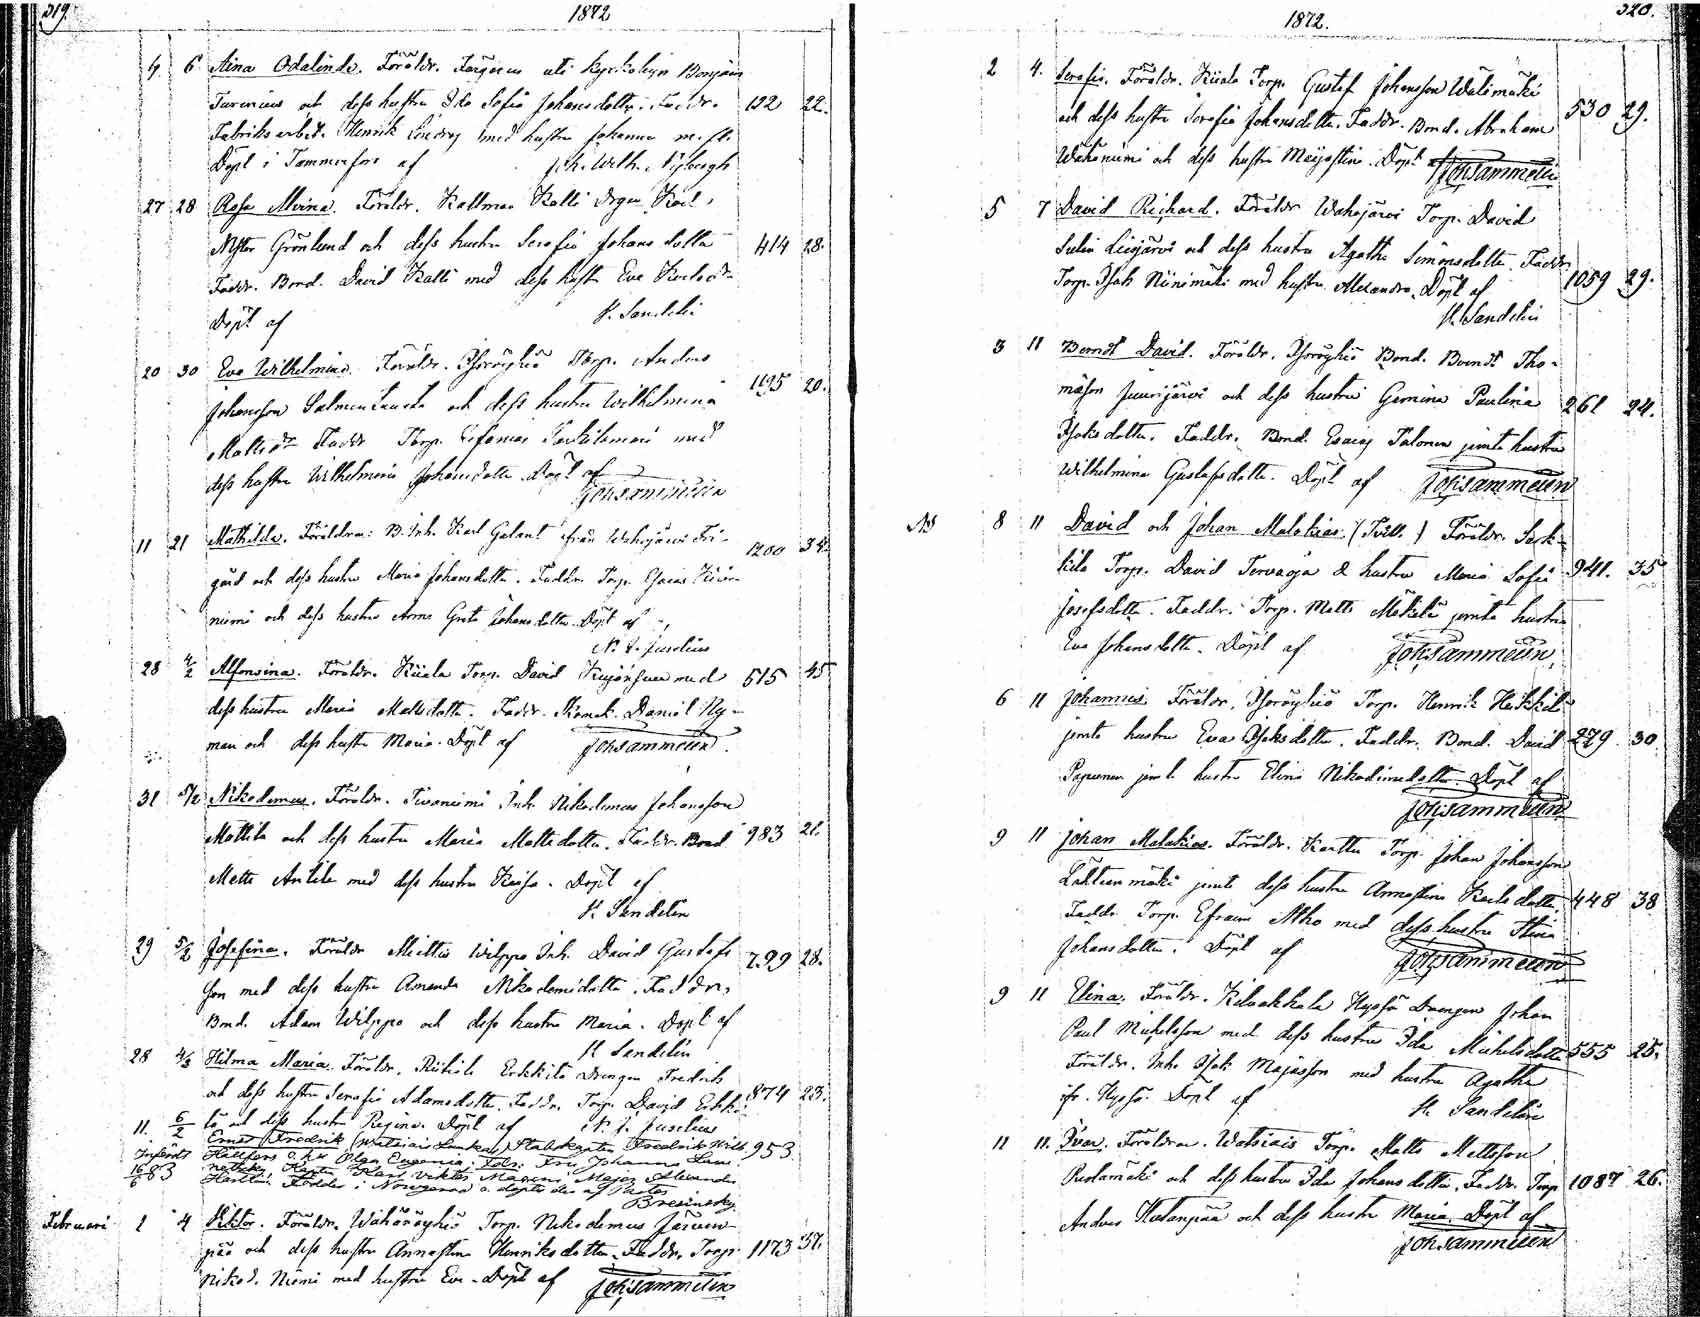 319.
1872
4 6 Aina Odalinda. Föräldr. Färgaren uti Kyrkobyn Benjam
Turenius och dess hustru Ida Sofia Johansdotter. Faddr. 122 22.
Fabriksarbet. Henrik Lindrog med hustru Johanna
Döpt i Tammerfors af Joh. Wilh. Nybergh
27 28 Rosa Alvina. Föräldr. Kallmaa Kalli Drgen Karl
Nestor Grönlund och dess hustru Serafia Johansdotter 414 28.
Faddr. Bond. David Kalli med dess hustr Eva Karlsdr
Döpt af K. Sandelin
20 30 Eva Wilhelmina. Föräldr. Torp. Anders
Johansson och dess hustru Wilhelmina 1195 20.
Mattsdr Faddr Torp. med
dess hustru Wilhelmina Johansdotter. Döpt af
Joh. Sammelin
11 21 Mathilda. Föräldrar: B. Inh. Karl Galant från Wahojärvi Fri- 1200 34.
gård och dess hustru Maria Johansdotter. Faddr. Torp. Esaias
niemi och dess hustru Anna Greta Johansdotter. Döpt af
N. J. Juselius
28 4/2 Alfonsina. Föräldr. Kiiala Torp. David med 515 45
dess hustru Maria Mattsdotter. Faddr. Skomak. Daniel Ny-
man och dess hustr Maria. Döpt af Joh Sammelin.
31 5/2 Nikodemus. Föräldr. Inh. Nikodemus Johansson
Mattila och dess hustru Maria Mattsdotter. Faddr. Bond 983 21.
Matts Antila med dess hustru Kaisa. Döpt af
K. Sandelin
29 5/2 Josefina. Föräldr Miettis Wilppo Inh. David Gustafs 799 28.
son med dess hustru Amanda Nikodemidotter. Faddr.
Bond. Adam Wilppo och dess hustru Maria. Döpt af
K Sandelin
28 4/3 Hilma Maria. Föräldr. Riihile Erkkilä Drengen Fredrik
och dess hustru Serafia Adamsdotter. Faddr. Torp. David Erkki- 874 23.
lä och dess hustru Regina. Döpt af N. J. Juselius
11. 6/2 Ernst Fredrik (Watiais Lunka) Stabskapten Fredrik Wilh. 953
Infördt Hällfors o. h. h. Olga Eugenia; Fdr: Fru Johanna
16/6 83 Kapten Karl Viktor Major Alexander
Födde i Nowgorod o. döpte der af Pastor
Bresinsky
Februari 1 4 Viktor. Föräldr. Wähäröyhiö Torp. Nikodemus Järven-
pää och dess hustru Annastina Henriksdotter. Faddr. Torp. 1173 37.
Nikod. Niemi med hustru Eva. Döpt af Joh Sammelin
320.
1872.
2 4. Serafia. Föräldr. Kiiala Torp. Gustaf Johansson Wälimäki
och dess hustru Serafia Johansdotter. Faddr. Bond. Abraham 530 29.
Wähäniemi och dess hustru Majastina. Döpt af Joh Sammelin
5 7 David Richard. Föräldr Wahojärvi Torp. David
Sulin Liesjärvi och dess hustru Agatha Simonsdotter. Faddr.
Torp. Isak Niinimäki med hustru Alexandra. Döpt af 1059 29.
K. Sandelin
3 11 Berndt David. Föräldr. Isoröyhiö Bond. Berndt Tho-
masson Juurijärvi och dess hustru Gemina Paulina 261 24.
Isaksdotter. Faddr. Bond. Esaias Palonen jemte hustru
Wilhelmina Gustafsdotter. Döpt af Joh Sammelin
NB 8 11 David och Johan Malakias. (Tvill.) Föräldr. Sark-
kila Torp. David Tervaoja & hustru Maria Sofia 941. 35
Josefsdotter. Faddr. Torp. Matts Mäkelä jemte hustru
Eva Johansdotter. Döpt af Joh Sammelin.
6 11 Johannes. Föräldr. Isoröyhiö Torp. Henrik Heikkilä
jemte hustru Eva Isaksdotter. Faddr. Bond. David 279 30
Papunen jemte hustru Elina Nikodimidotter. Döpt af
Joh Sammelin
9 11 Johan Malakias. Föräldr. Karttu Torp. Johan Johansson
Lähteenmäki jemte dess hustru Annastina Karlsdotter 448 38
Faddr. Torp. Efraim Alho med dess hustru Stina
Johansdotter. Döpt af Joh Sammelin
9 11 Elina. Föräldr. Kilvakkala Hyppä Drengen Johan
Paul Michelsson med dess hustru Ida Michelsdotter 555 25.
Föräldr. Inh. Isak Majasson med hustru Agatha
ifr. Hyppä. Döpt af K. Sandelin
11 11. Ivar. Föräldrar. Watsiais Torp. Matts Mattsson
Rustamäki och dess hustru Ida Johansdotter. Faddr. Torp 1087 26.
Anders Hietanpää och dess hustru Maria. Döpt af
Joh Sammelin